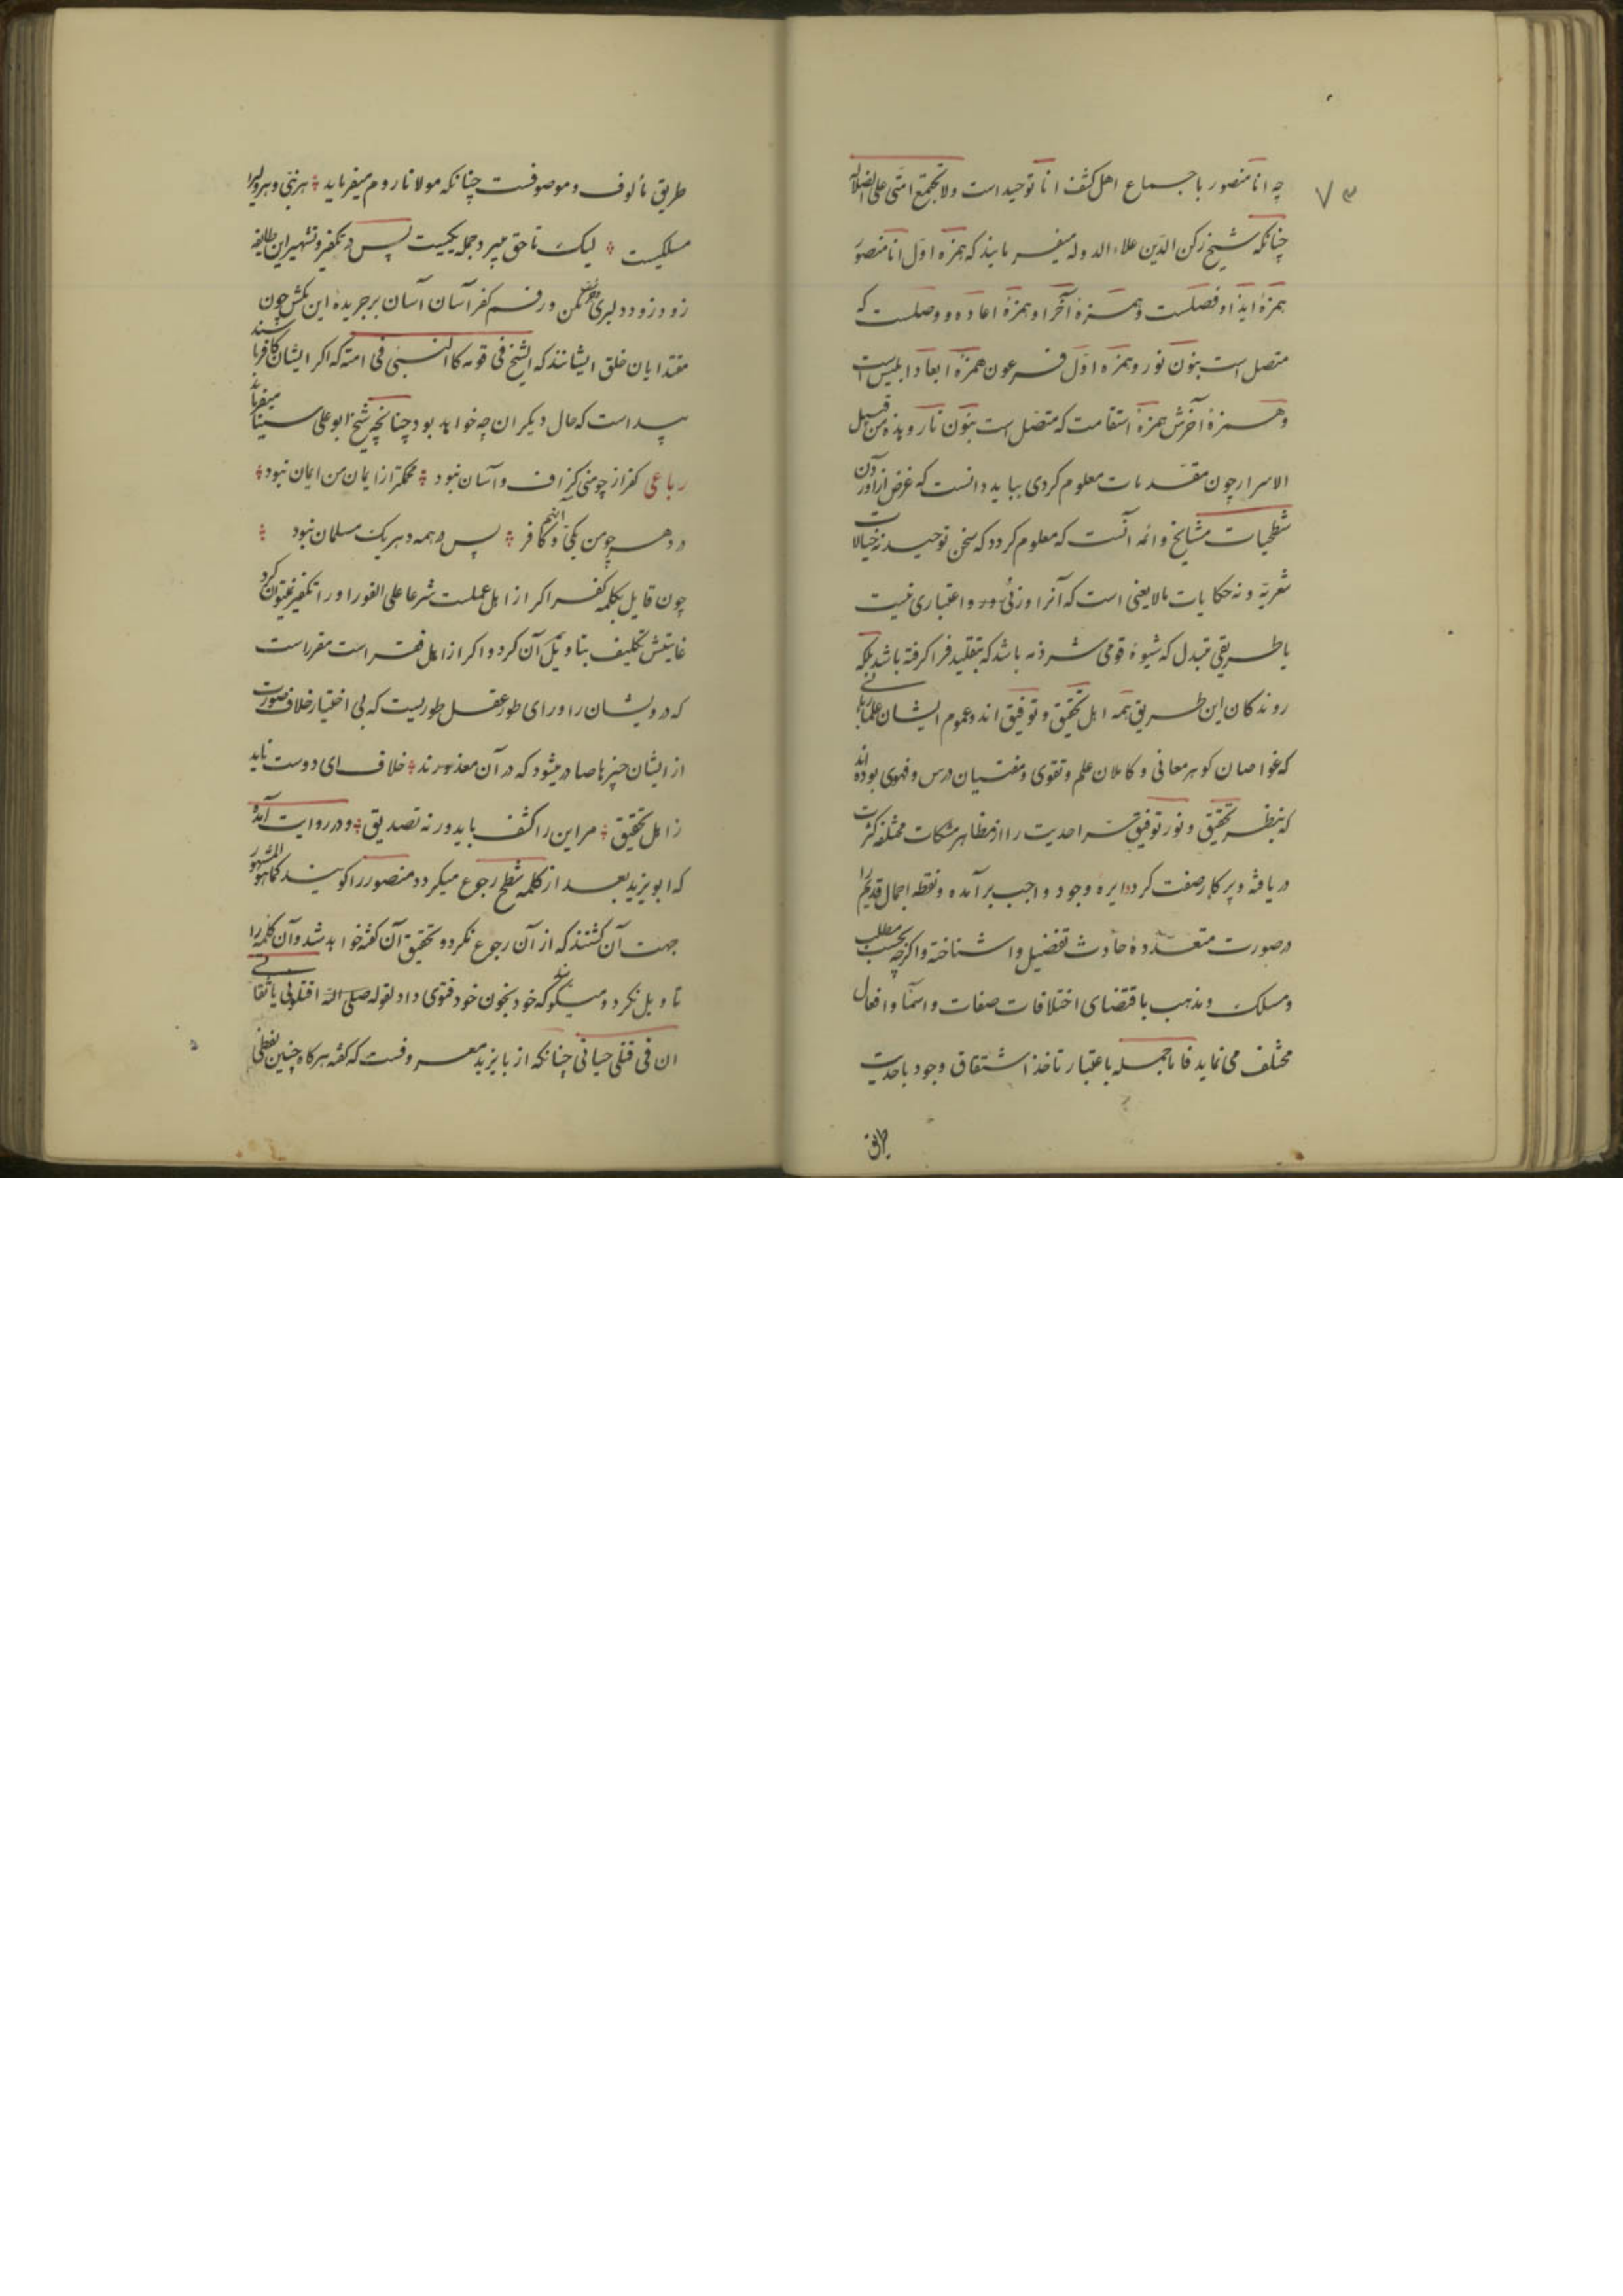 ۷۳
چه انا منصور باجماع اهل کشف انا توحید است ولا تجتمع امتی علی الضلاله
چنانکه شیخ رکن الدین علاء الدوله میفرمایند که همزه اول انا منصور
همزهٔ ایذا و فصلست و همزهٔ آخر او همزهٔ اعاده و وصلست که
متصل است بنون نور و همزه اول فرعون همزهٔ ابعاد ابلیس است
و همزهٔ آخرش همزهٔ استقامت که متصل است بنون نار و هذه من قبیل
الاسرار چون مقدمات معلوم کردی بباید دانست که غرض از آوردن
شطحیات مشایخ وائمه آنست که معلوم کردد که سخن توحید نه خیالات
شعریه و نه حکایات مالایعنی است که آنرا وزنی و اعتباری نیست
یا طریقی مبدل که شیوهٔ قومی شرذمه باشد که بتقلید فرا کرفته باشد بلکه
روندکان این طریق همه اهل تحقیق و توفیق اند و عموم ایشان علماء ربانی
که غواصان کوهر معانی و کاملان علم و تقوی و مفتیان درس و فتوی بوده اند
که بنظر تحقیق و نور توفیق سر احدیت را از مظاهر مشکات مختلفه کثرت
دریافته و پرکار صفت کرد دایره وجود واجب برآمده و نقطه اجمال قدیم را
در صورت متعددهٔ حادث تفضیل واشناخته و اکرچه بحسب مطلب
ومسلک و مذهب باقتضای اختلافات صفات و اسما و افعال
مختلف می نماید فاما جمله باعتبار تاخذ اشتقاق وجود باحدیت
طریق
طریق مألوف و موصوفست چنانکه مولانا روم میفرماید هر نبی و هر ولی را
مسلکیست لیک تا حق میبرد جمله یکیست پس در تکفیر و تشهیر این طایفه
زود زود دلیری مکن و رقم کفر آسان آسان بر جریدهٔ این مکش چون
مقتدایان خلق ایشانند که الشیخ فی قومه کالنبی فی امته که اکر ایشان کافر باشند
پیداست که حال دیکران چه خواهد بود چنانچه شیخ ابوعلی سینا میفرماید
رباعی کفر از چو منی کزاف و آسان نبود محکمتر از ایمان من ایمان نبود
در دهر چو من یکی و آنهم کافر پس در همه دهر یک مسلمان نبود
چون قایل بکلمه کفر اکر از اهل عملست شرعا علی الفور او را تکفیر نتوان کرد
غایتش تکلیف بتاویل آن کرد و اکر از اهل فقر است مقرر است
که درویشان را ورای طور عقل طوریست که بی اختیار خلاف صورت
از ایشان چیزها صادر میشود که در آن معذورند خلاف ای دوست ناید
ز اهل تحقیق مر این را کشف باید ور نه تصدیق و در روایت آمده
که ابو یزید بعد از کلمه شطح رجوع میکرد و منصور را کویند کماهو المشهور
جهت آن کشتند که از آن رجوع نکرد و تحقیق آن کفته خواهد شد و آن کلمه را
تاویل نکرد و میکویند که خود بخون خود فتوی داد لقوله اقتلونی یا ثقاتی
ان فی قتلی حیاتی چنانکه از بایزید معروفست که کفته هرکاه چنین لفظی